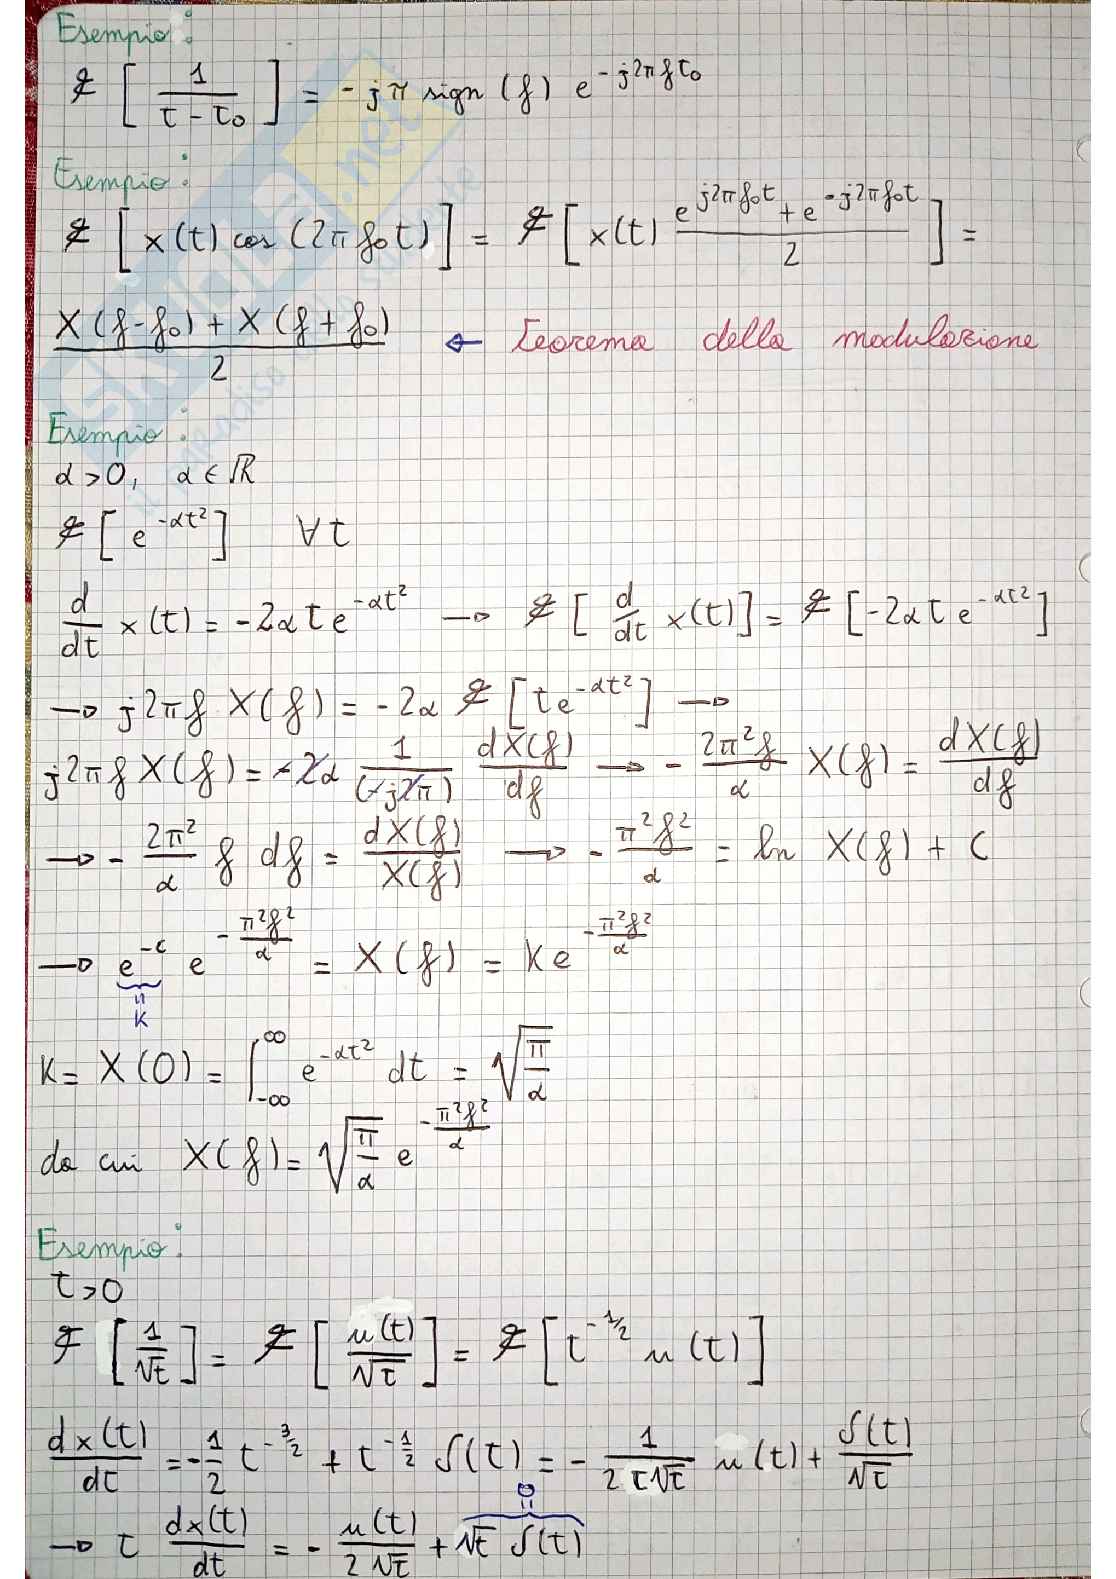 Esempio:
ℱ [ 1/(t - t₀) ] = - jπ sign (f) e^(-j2πf t₀)
Esempio:
ℱ [ x(t) cos (2π f₀t) ] = ℱ [ x(t) (e^(j2πf₀t) + e^(-j2πf₀t))/2 ] =
(X(f-f₀) + X(f+f₀))/2 ← Teorema della modulazione
Esempio:
α > 0, α ∈ ℝ
ℱ [ e^(-αt²) ] ∀ t
d/dt x(t) = -2α t e^(-αt²) → ℱ [ d/dt x(t) ] = ℱ [ -2α t e^(-αt²) ]
→ j2πf X(f) = -2α ℱ [ t e^(-αt²) ] →
j2πf X(f) = -2α 1/(-j2π) dX(f)/df → - 2π²f/α X(f) = dX(f)/df
→ - 2π²/α f df = dX(f)/X(f) → - π²f²/α = ln X(f) + C
→ e^(-c) e^(-π²f²/α) = X(f) = K e^(-π²f²/α)
"
K
K = X(0) = ∫_(-∞)^(∞) e^(-αt²) dt = √(π/α)
da cui X(f) = √(π/α) e^(-π²f²/α)
Esempio:
t > 0
ℱ [ 1/√t ] = ℱ [ u(t)/√t ] = ℱ [ t^(-1/2) u(t) ]
dx(t)/dt = - 1/2 t^(-3/2) + t^(-1/2) δ(t) = - 1/(2t√t) u(t) + δ(t)/√t
→ t dx(t)/dt = - u(t)/(2√t) + √t δ(t)
= 0
SKUOLA.net
il paradiso dello studente